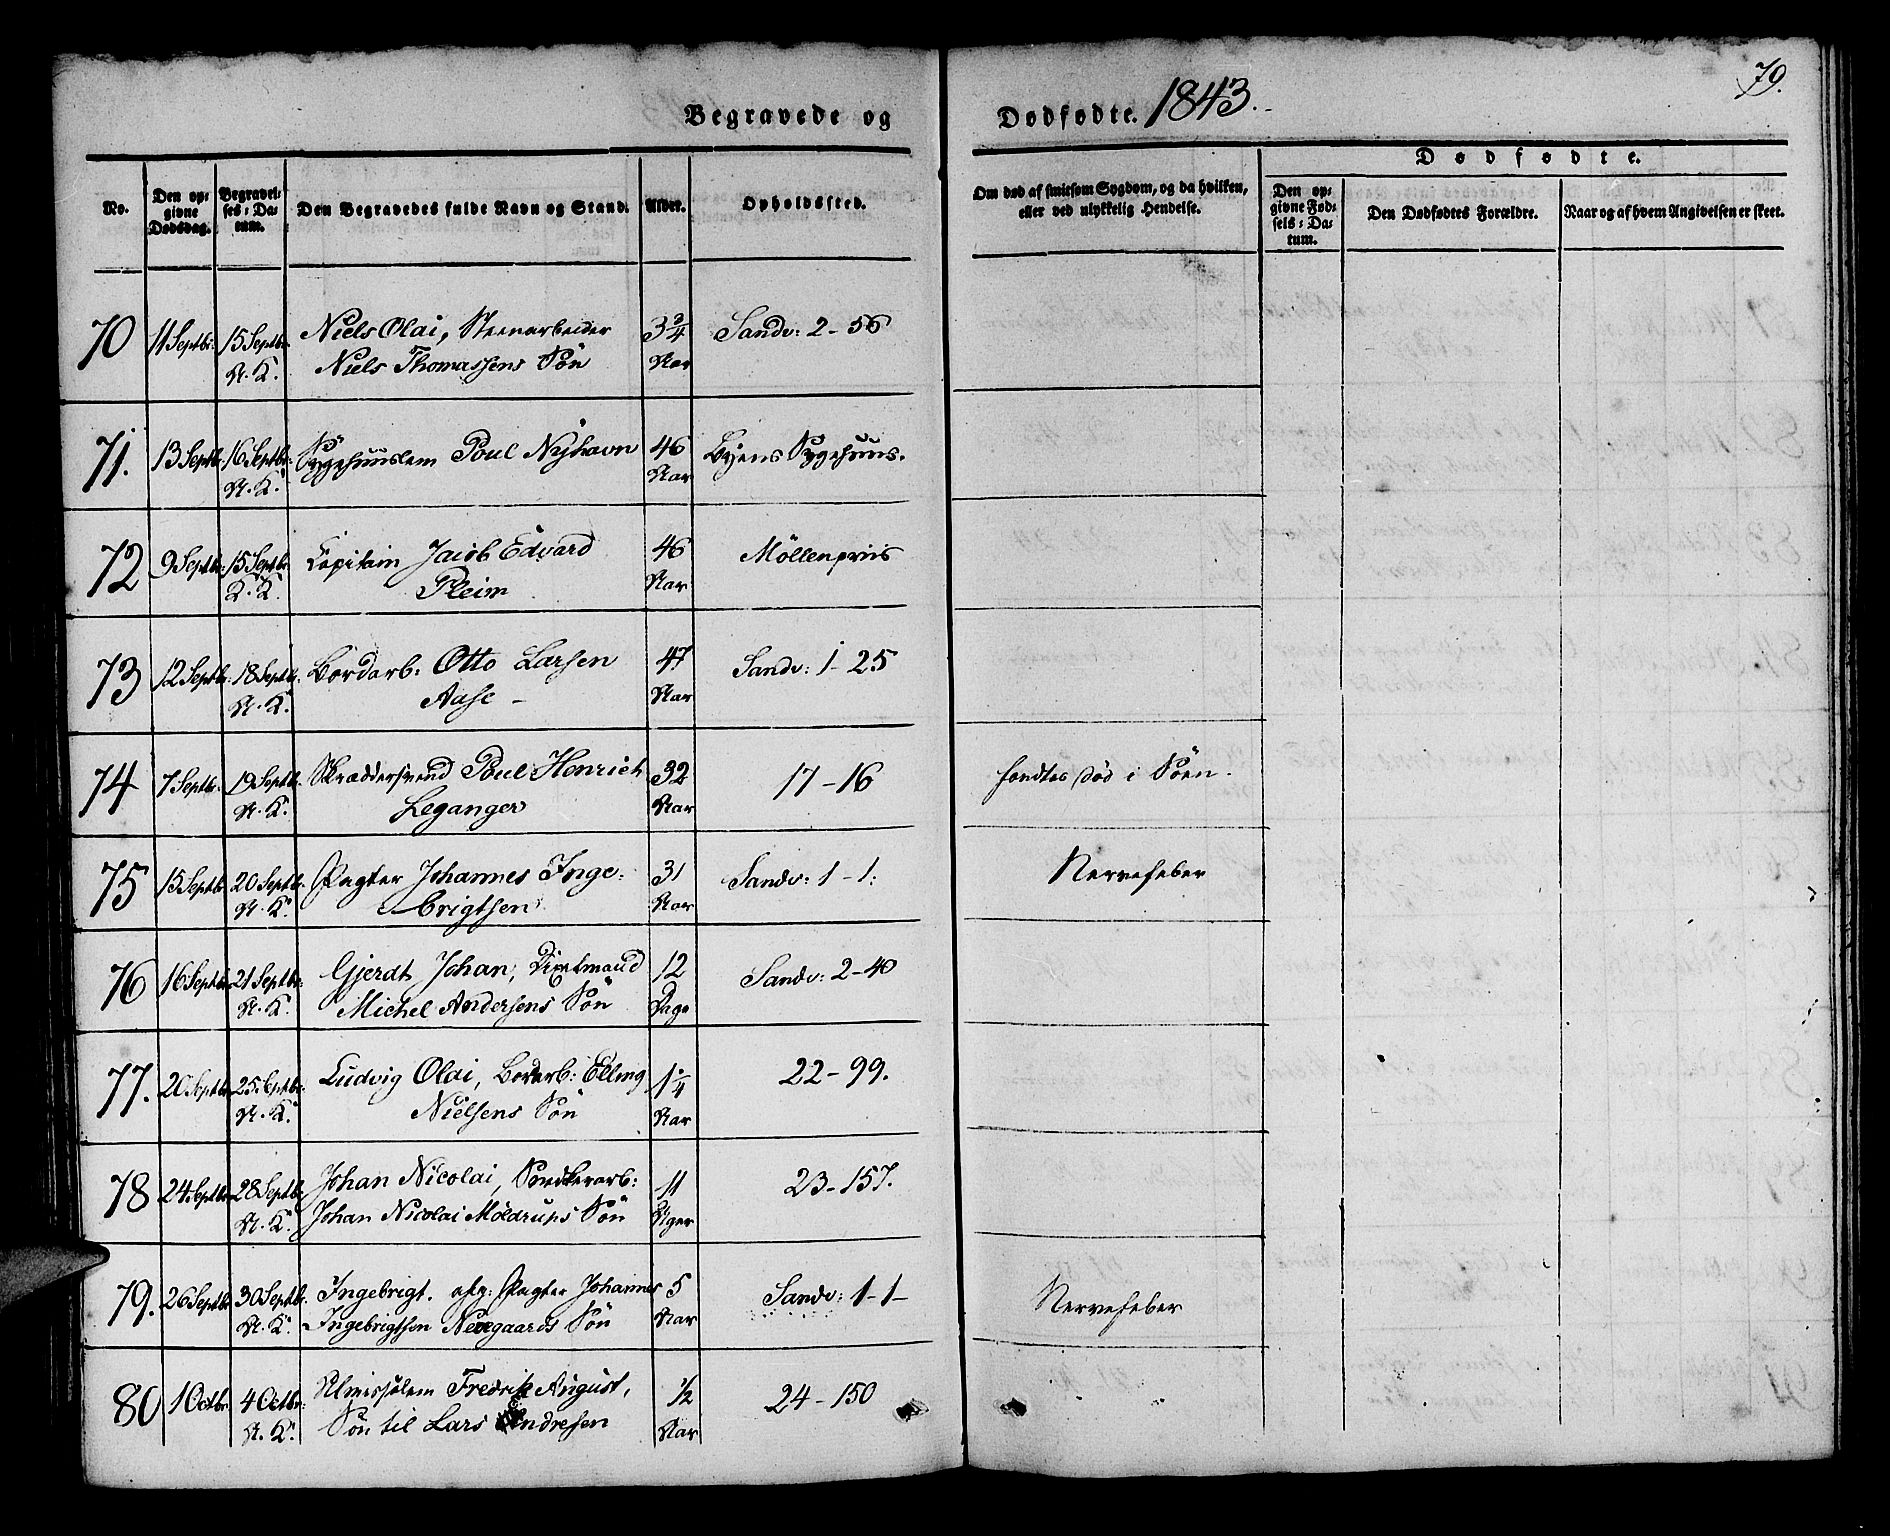 79.
Begravede og Dødfødte. 1843.
Dødfødte.
No. | Den opgivne Dødsdag. | Begravelses-Datum. | Den Begravedes fulde Navn og Stand. | Alder. | Opholdssted. | Om død af smitsom Sygdom, og da hvilken, eller ved ulykkelig Hendelse. | Den opgivne Fødsels-Datum. | Den Dødfødtes Forældre. | Naar og af hvem Angivelsen er skeet.
70 | 11 Septbr: | 15 Septbr. | Niels Olai, Steenarbeider | 3 3/4 | Sandv: 2-56
N. K. | Niels Thomassens Søn | Aar
71. | 13 Septbr | 16 Septbr: | Sygehuuslem Poul Nyhavn | 46 | Byens Sygehuus.
N. K. | Aar
72 | 9 Septbr. | 15 Septbr. | Capitain Jacob Edvard | 46 | Möllenpriis
K. K. | Pleim | Aar
73 | 12 Septbr. | 18 Septbr. | Bordarb: Otto Larsen | 47 | Sandv: 1-25
N. K. | Aase - | Aar
74 | 7 Septbr. | 19 Septbr. | Skræddersvend Poul Henrich | 32 | 17-16 | fandtes död i Söen.
N. K. | Leganger | Aar
75 | 15 Septbr | 20 Septbr. | Pagter Johannes Inge- | 31 | Sandv: 1-1: | Nervefeber
N. K. | brigtsen | Aar
76 | 16 Septbr. | 21 Septbr: | Gjerdt Johan, | 12 | Sandv: 2-40
N. K. | Michel Andersens Sön | Dage
77. | 20 Septbr. | 25 Septbr: | Ludvig Olai, Bordarb: Elling | 1 1/4 | 22-99.
N. K. | Nielsens Sön | Aar
78 | 24 Septbr. | 28 Septbr. | Johan Nicolai, Snedkerarb: | 11 | 23-157.
N. K. | Johan Nicolai Möldrups Sön | Uger
79. | 26 Septbr | 30 Septbr. | Ingebrigt. afg: Pagter Johannes | 5 | Sandv: 1-1- | Nervefeber
N. K. | Ingebrigtsen Sön | Aar
80 | 1 Octbr. | 4 Octbr: | Almisselem Fredrik August, | 1/2 | 24-150
N. K. | Sön til Lars Andresen | Aar